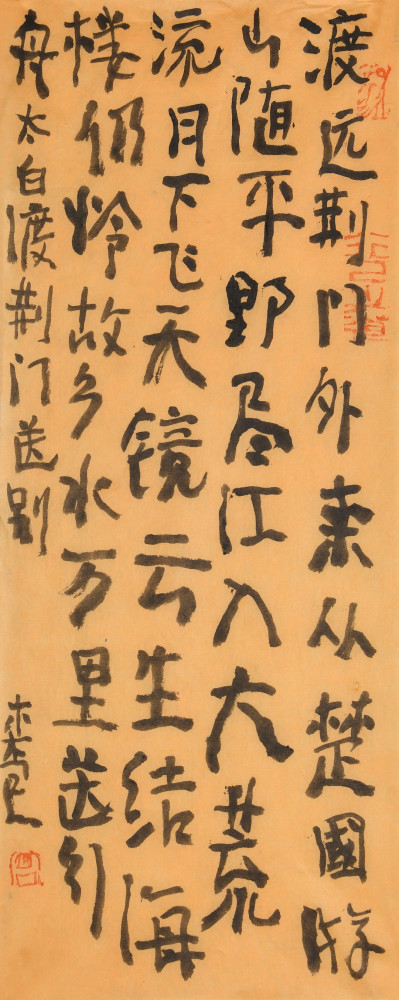 渡远荆门外来从楚國游
山随平野尽江入大荒
流月下飞天镜云生结海
楼仍怜故乡水万里送行
舟太白渡荆门送别